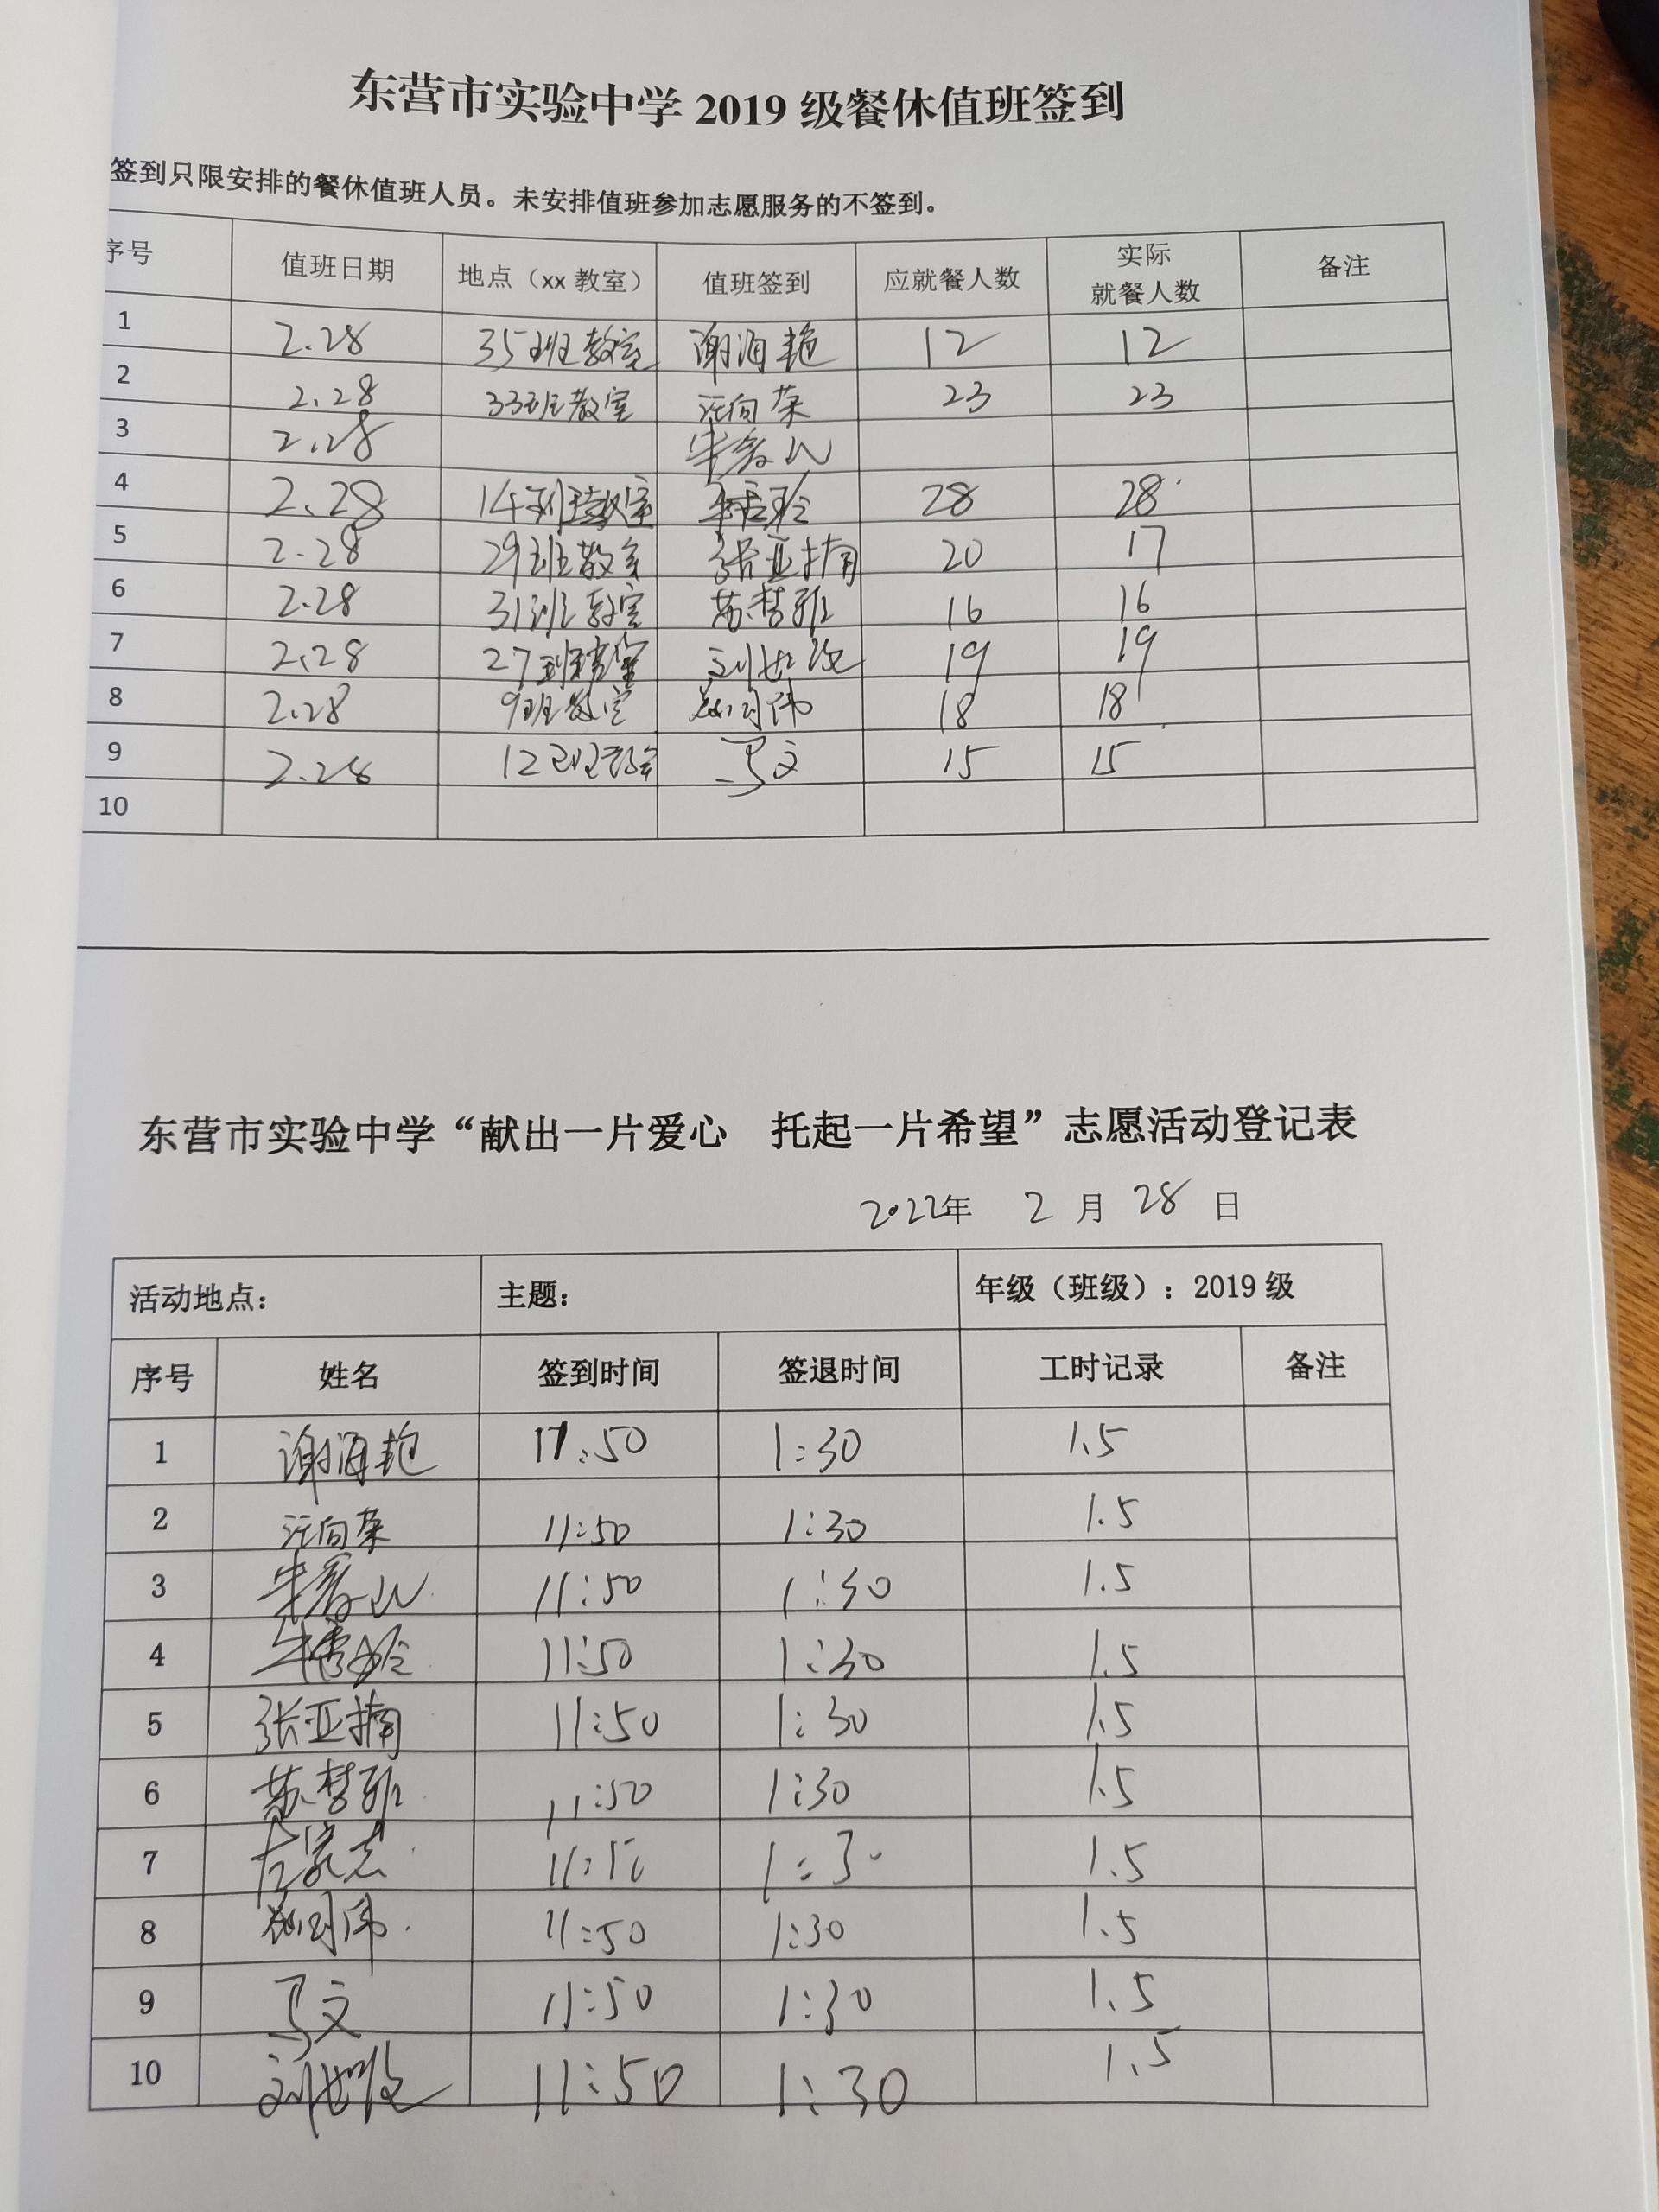 东营市实验中学 2019 级餐休值班签到
签到只限安排的餐休值班人员。未安排值班参加志愿服务的不签到。
序号 值班日期 地点（xx 教室） 值班签到 应就餐人数 实际就餐人数 备注
1 2.28 35班教室 谢海艳 12 12
2 2.28 33班教室 汪向荣 23 23
3 2.28
4 2.28 14班教室 28 28
5 2.28 29班教室 张亚楠 20 17
6 2.28 31班教室 苏梦雅 16 16
7 2.28 27班教室 19 19
8 2.28 9班教室 18 18
9 2.28 12班教室 马文 15 15
10
东营市实验中学“献出一片爱心 托起一片希望”志愿活动登记表
2022年 2 月 28 日
活动地点： 主题： 年级（班级）：2019 级
序号 姓名 签到时间 签退时间 工时记录 备注
1 谢海艳 11:50 1:30 1.5
2 汪向荣 11:50 1:30 1.5
3 11:50 1:30 1.5
4 11:50 1:30 1.5
5 张亚楠 11:50 1:30 1.5
6 苏梦雅 11:50 1:30 1.5
7 1:30 1.5
8 11:50 1:30 1.5
9 马文 11:50 1:30 1.5
10 11:50 1:30 1.5